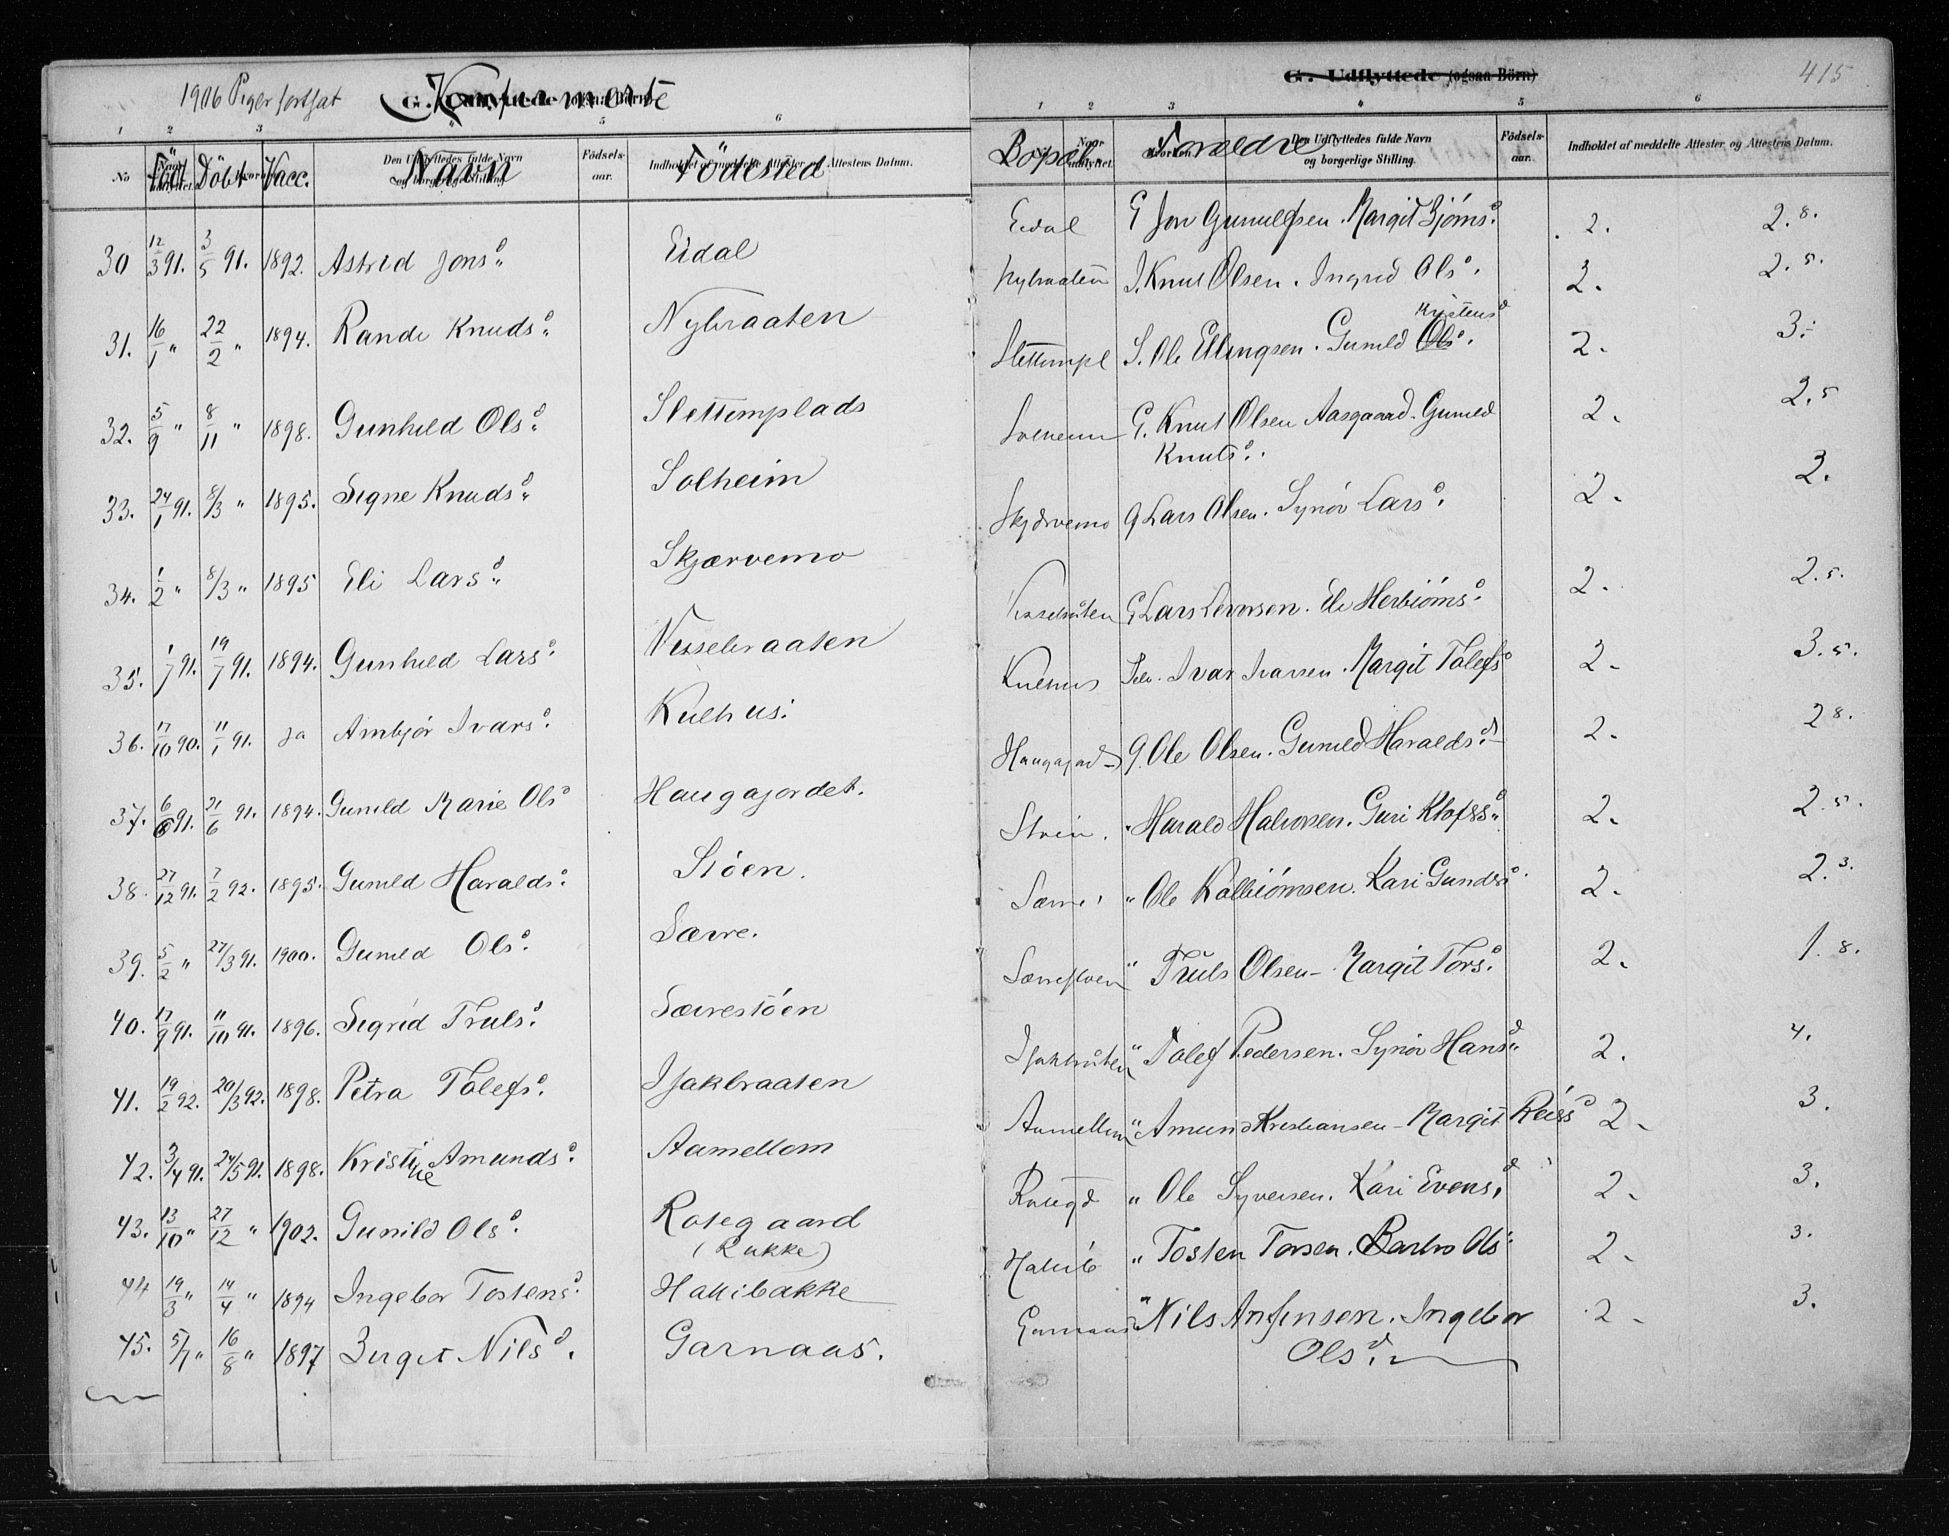 1906 Piger fortsat Konfirmerte
No Født Döbt Vacc. Navn Födselsaar. Födested
30 12/3 91. 3/5 91. 1892. Astrid Jonsd. Eidal
31. 16/1 " 22/2 " 1894. Randi Knudsd. Nybraaten
32. 5/9 " 8/11 " 1898. Gunhild Olsd. Slettemplads
33. 24/1 91. 8/3 " 1895. Signe Knudsd. Solheim
34. 1/2 " 8/3 " 1895 Eli Larsd. Skjærvemo
35. 1/7 91. 19/7 91. 1894. Gunhild Larsd. Nissebraaten
36. 17/10 90. 11/1 91. ja Ambjør Ivarsd. Kulhus.
37. 6/6 91. 21/6 91. 1894. Gunild Marie Olsd Haugajordet.
38. 27/12 91. 7/2 92. 1895. Gunild Haraldsd. Stöen.
39. 5/2 " 27/3 91. 1900. Gunild Olsd. Sævre.
40. 17/9 91. 11/10 91. 1896. Sigrid Trulsd. Sævrestöen
41. 19/2 92. 20/3 92. 1898. Petra Tolefsd. Isakbraaten
42. 3/4 91. 24/5 91. 1898. Kristine Amundsd. Aamellom
43. 13/10 " 27/12 " 1902. Gunild Olsd. Rotegaard
(Rukke)
44 19/3 " 14/4 " 1894 Ingebor Tostensd. Hallibakke
45. 5/7 " 16/8 " 1897 Birgit Nilsd. Garnaas.
G. Udflyttede (ogsaa Börn) 415
Bopæl Forældre Födselsaar. Indholdet af meddelte Attester og Attestens Datum.
Eidal G Jon Gunulfsen. Margit Bjömsd. 2. 2.8.
Nybraaten I. Knut Olsen. Ingrid Olsd. 2. 2.5.
Kristensd
Slettempl S. Ole Ellingsen. Gunild Olsd. 2. 3.
Solheim G. Knut Olsen Aasgaard. Gunild 2. 2.5
Knutsd.
Skjærvemo G Lars Olsen. Synöv Larsd. 2. 2.
G Lars Levorsen. Eli Herbiömsd. 2. 2.5.
Kulhus Selv. Ivar Ivarsen. Margit Tolefsd 2. 3.5.
Haugajord G. Ole Olsen. Gunild Haraldsd. 2. 2 8.
Stöen. " Harald Halvorsen. Guri Klofsd. 2. 2.5.
Sævre " Ole Kolbiömsen. Kari Gundersd. 2. 2.3.
Sævrestöen " Truls Olsen - Margit Torsd. 2. 1.8.
Isakbråten " Tolef Pedersen. Synöv Hansd. 2. 4.
Aamellom " Amund Kristiansen - Margit Reiersd 2. 3.
Rotegd " Ole Syversen. Kari Evensd. 2. 3.
Hallib " Tosten Torsen. Barbro Olsd. 2. 3.
Garnaas " Nils Arnfinsen. Ingebor 2. 3.
Olsd.